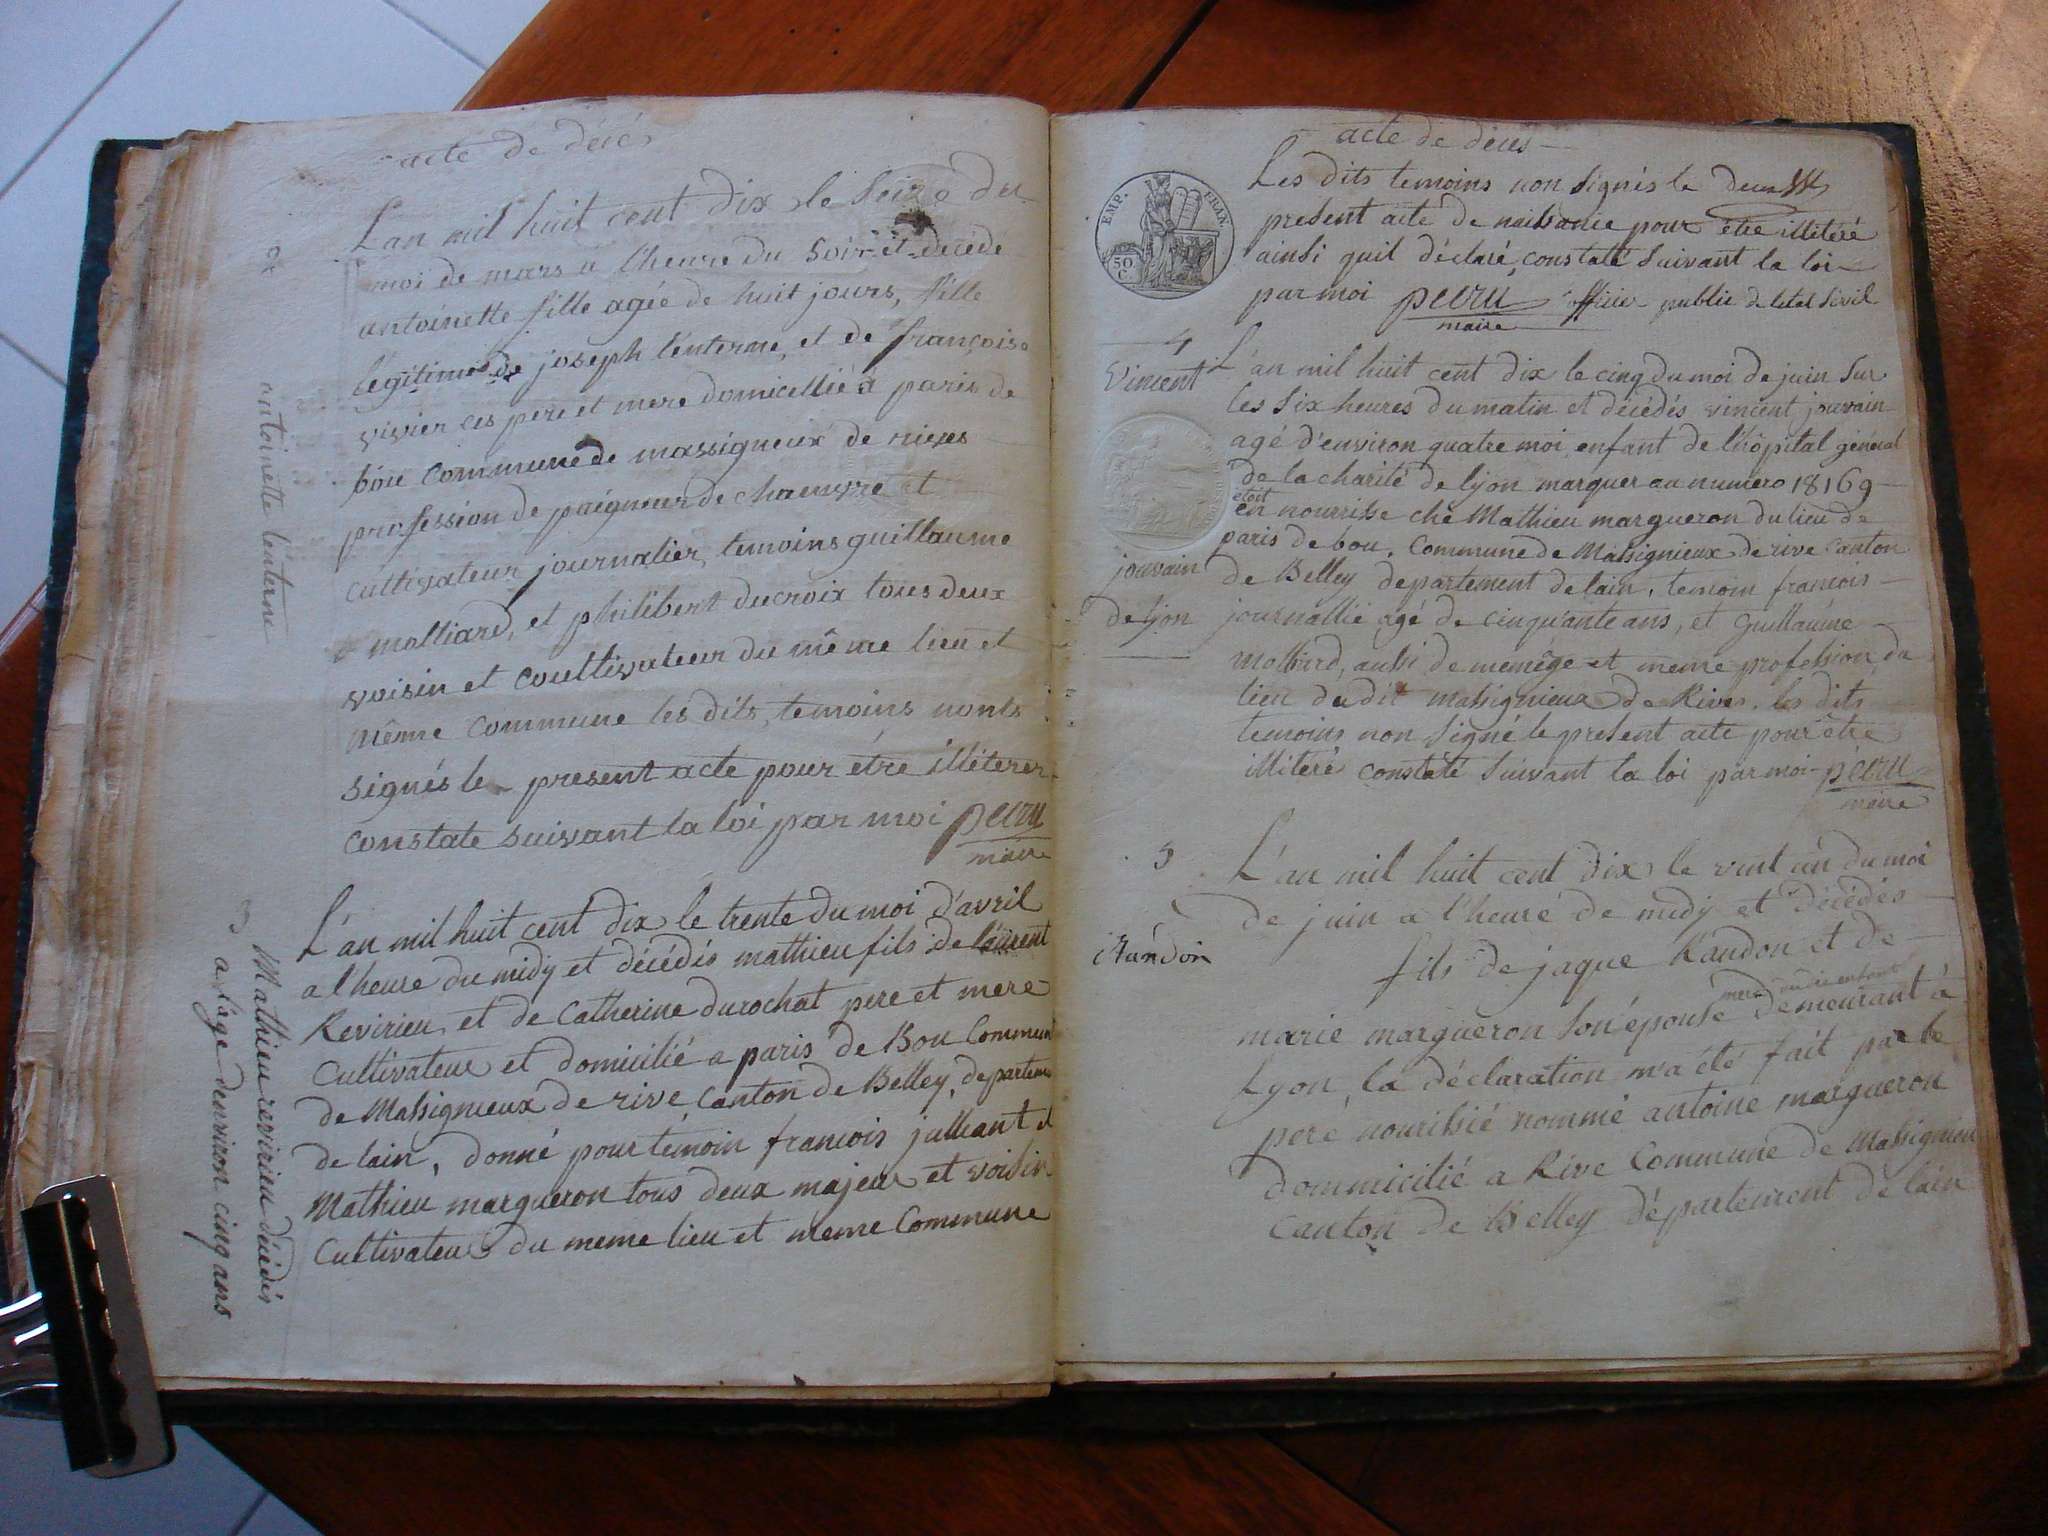 acte de décé
2
antoinette lenterne
L'an mil huit cent dix le seize du
moi de mars a l'heure du soir et décédé
antoinette fille agée de huit jours, fille
légitime de joseph lenterne, et de françoise
vivier ces pere et mere domicellié à paris de
bou commune de massigneux de rives
profession de paigneur de chanvre et
cultivateur journalier, temoins guillaume
molliard, et philibert ducroix tous deux
voisin et coultivateur du même lieu et
même commune les dits temoins nonts
signés le present acte pour étre illéterer
constate suivant la loi par moi pecru
maire
3
Mathieu revirieu décédés
a l'age denviron cinq ans
L'an mil huit cent dix le trente du moi d'avril
a l'heure du midy et décédés mathieu fils de laurent
Revirieu, et de Catherine durochat pere et mere
Cultivateur et domicilié a paris de Bou Commune
de Massignieux de rive canton de Belley, departeme
de lain, donné pour témoin francois julliant et
Mathieu margueron tous deux majeur et voisin
Cultivateur du meme lieu et meme Commune
acte de déces
EMP. FRAN.
50 C.
Les dits temoins non signés le
present acte de naissance pour être illitéré
ainsi quil déclaré, constaté suivant la loi
par moi pecru officier public de letat sivil
maire
4
Vincent
jouvain
de lyon
L'an mil huit cent dix le cinq du moi de juin sur
les six heures du matin et décédés vincent jouvain
agé d'environ quatre moi enfant de l'hôpital général
de la charité de lyon marquer au numero 18169
étoit
en nourrisse ché Mathieu margueron du lieu de
paris de bou, commune de Massignieux de rive canton
de Belley departement de lain, temoin francois
journallié agé de cinquante ans, et Guillaume
Molliard, aussi de meme age et meme profession, du
lieu du dit massignieux de Rives. les dits
temoins non signé le présent acte pour être
illitéré constaté suivant la loi par moi pecru
maire
5
Randon
L'an mil huit cent dix le vint un du moi
de juin a l'heure de midy et décédés
fils de jaque Randon et de
marie margueron son épouse demeurant à
Lyon, la déclaration m'a été fait par le
pere nourissié nommé antoine margueron
dommicilié a Rive Commune de Massignieu
Canton de Belley département de lain